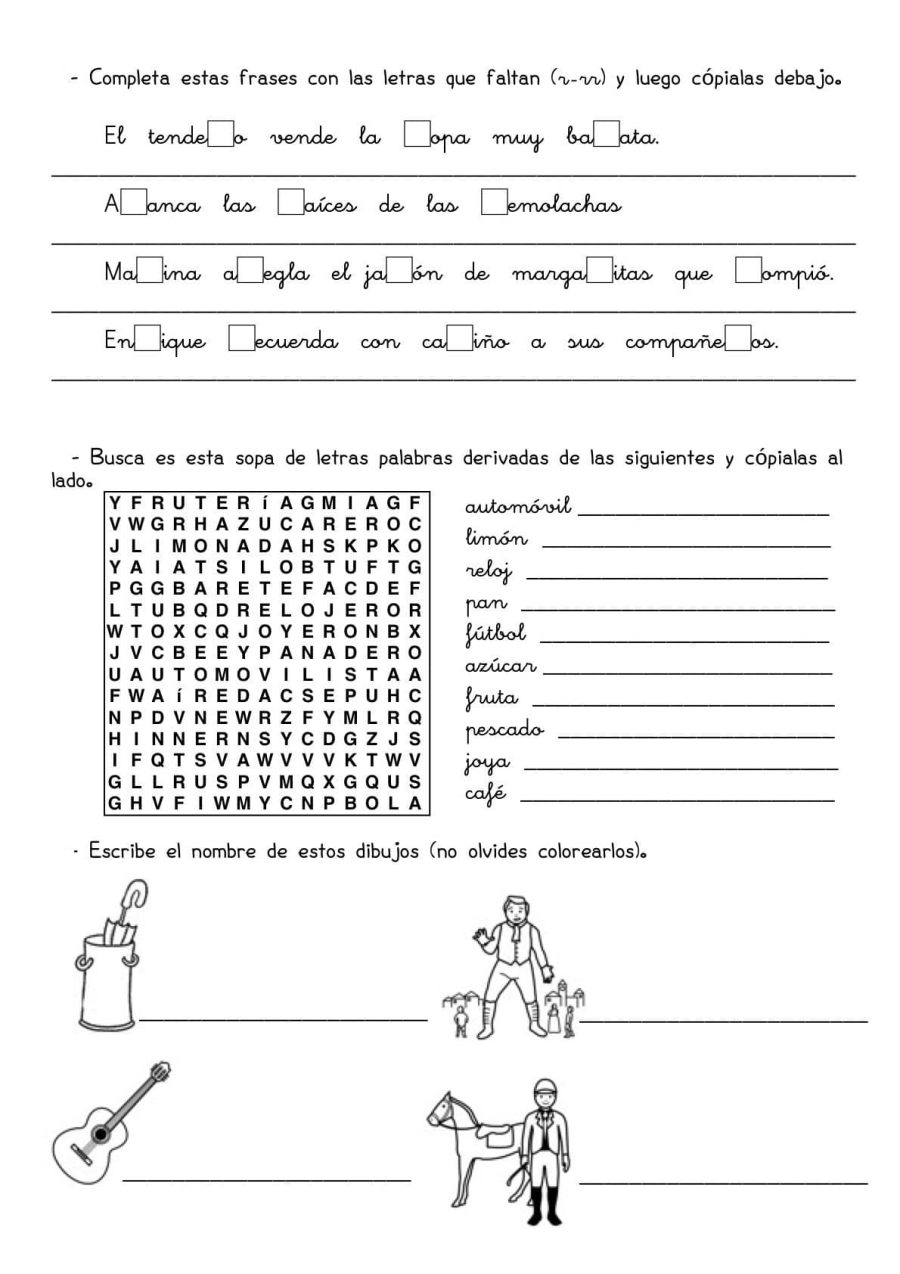 - Completa estas frases con las letras que faltan (r-rr) y luego cópialas debajo.
El tende□o vende la □opa muy ba□ata.
A□anca las □aíces de las □emolachas
Ma□ina a□egla el ja□ón de marga□itas que □ompió.
En□ique □ecuerda con ca□iño a sus compañe□os.
- Busca es esta sopa de letras palabras derivadas de las siguientes y cópialas al
lado.
Y F R U T E R í A G M I A G F
V W G R H A Z U C A R E R O C
J L I M O N A D A H S K P K O
Y A I A T S I L O B T U F T G
P G G B A R E T E F A C D E F
L T U B Q D R E L O J E R O R
W T O X C Q J O Y E R O N B X
J V C B E E Y P A N A D E R O
U A U T O M O V I L I S T A A
F W A í R E D A C S E P U H C
N P D V N E W R Z F Y M L R Q
H I N N E R N S Y C D G Z J S
I F Q T S V A W V V V K T W V
G L L R U S P V M Q X G Q U S
G H V F I W M Y C N P B O L A
automóvil
limón
reloj
pan
fútbol
azúcar
fruta
pescado
joya
café
- Escribe el nombre de estos dibujos (no olvides colorearlos).